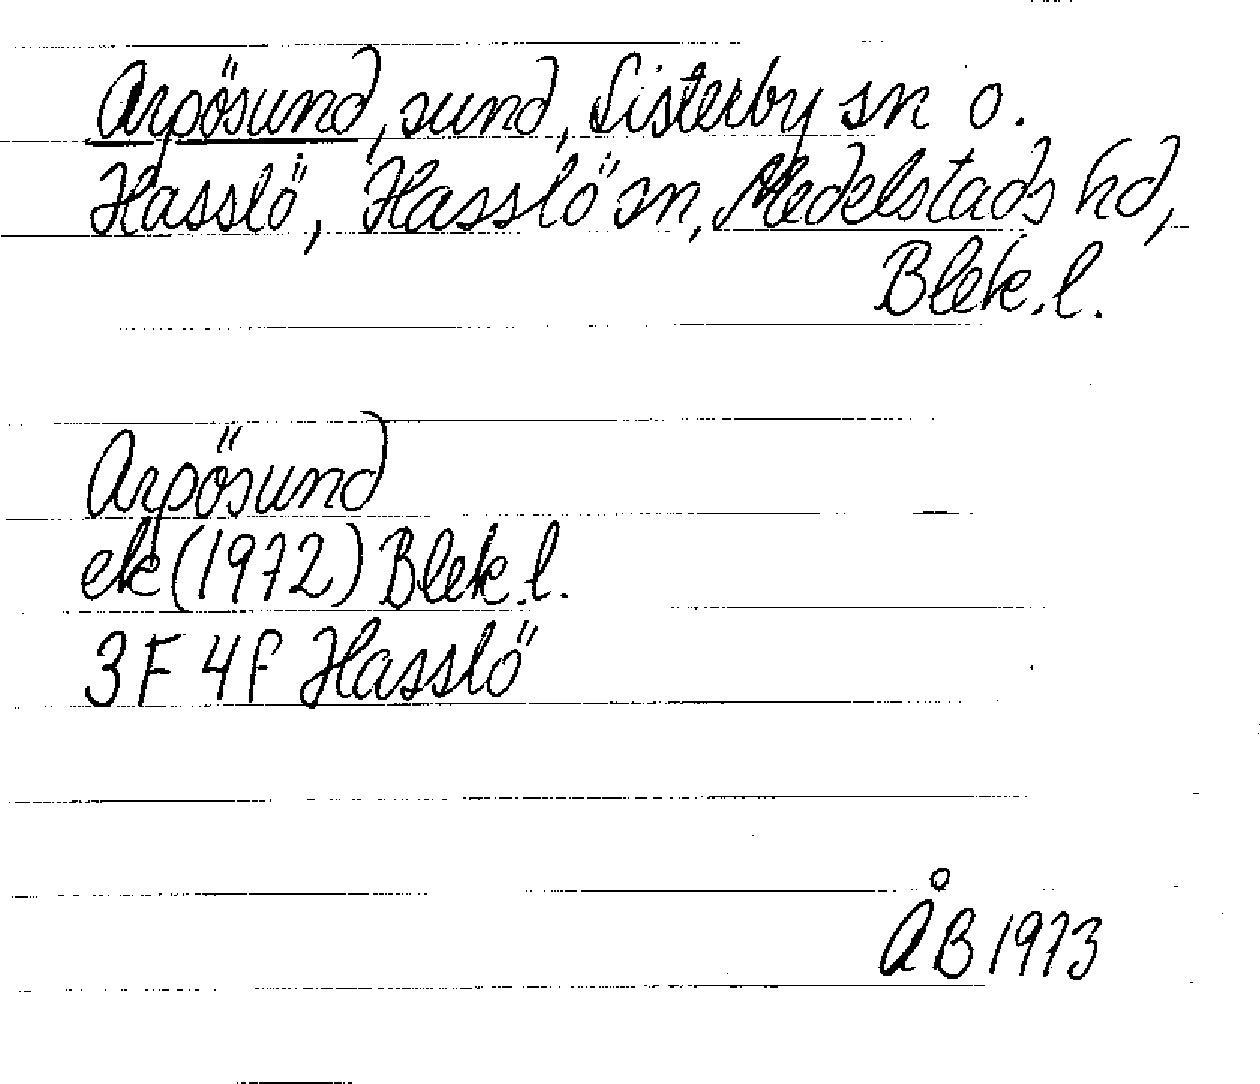 Arpösund, sund, Listerby sn o.
Hasslö, Hasslö sn, Medelstads hd,
Blek. l.
Arpösund
ek (1972) Blek. l.
3F 4f Hasslö
ÅB 1973